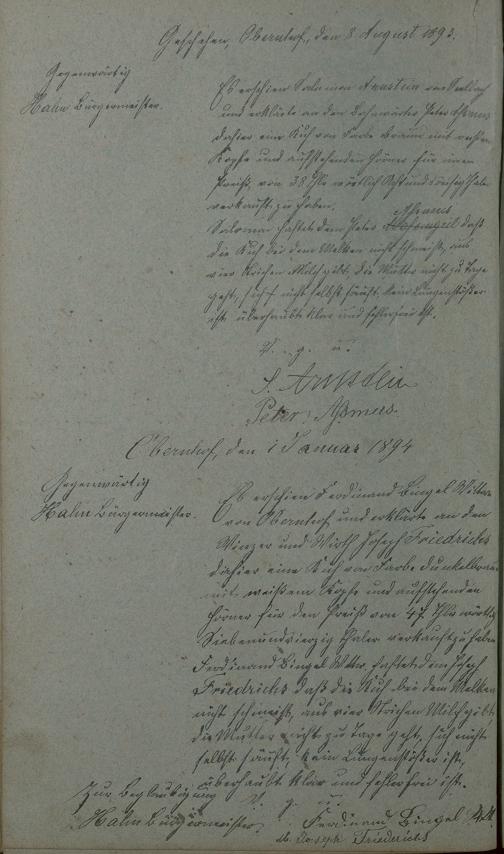 Geschehen, Obernhof, den 8. August 1893.
Gegenwärtig
Hahn Bürgermeister.
Es erschien Salomon Arnstein von
und erklärte an den Bahnwärter Peter Aßmus
dahier eine Kuh von Farbe braun mit
Kopfe und aufstehenden Hörner für einen
Preiß von 38 Thlr wörtlich Acht und dreißig Thaler
verkauft zu haben.
Aßmus
Salomon haftet dem Peter daß
die Kuh bei dem Melken nicht schmeißt, aus
vier Strichen Milch gibt, die Mutter nicht zu Tage
geht, sich nicht selbst säuft, kein Lungenstößer
ist, überhaubt klar und fehlerfrei ist.
V. g. u.
S. Arnstein
Peter Aßmus.
Obernhof, den 1 Januar 1894
Gegenwärtig
Hahn Bürgermeister.
Es erschien Ferdinand Bingel Wittwer
von Obernhof und erklärte an den
Winzer und Wirth Joseph Friedrichs
dahier eine Kuh von Farbe dunkelbraun
mit weißem Kopfe und aufstehenden
Hörner für den Preiß von 47 Thlr wörtlich
Siebenundvierzig Thaler verkauft zu haben
Ferdinand Bingel Wttwr. haftet dem Joseph
Friedrichs daß die Kuh bei dem Melken
nicht schmeißt, aus vier Strichen Milch gibt
die Mutter nicht zu Tage geht, sich nicht
selbst säuft, kein Lungenstößer ist,
überhaubt klar und fehlerfrei ist.
Zur Beglaubigung
V. g. u.
Hahn Bürgermeister.
Ferdinand Bingel
Joseph Friederichs